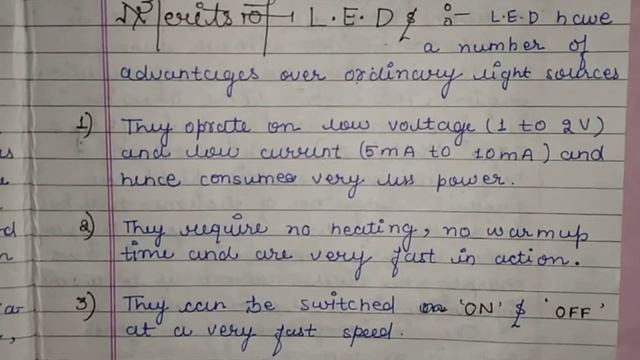 Merits of L.E.D s :- L.E.D have
a number of
advantages over ordinary light sources
1) They oprate on low voltage (1 to 2V)
and low current (5mA to 10mA) and
hence consumes very less power.
2) They require no heating, no warmup
time and are very fast in action.
3) They can be switched on 'ON' & 'OFF'
at a very fast speed.